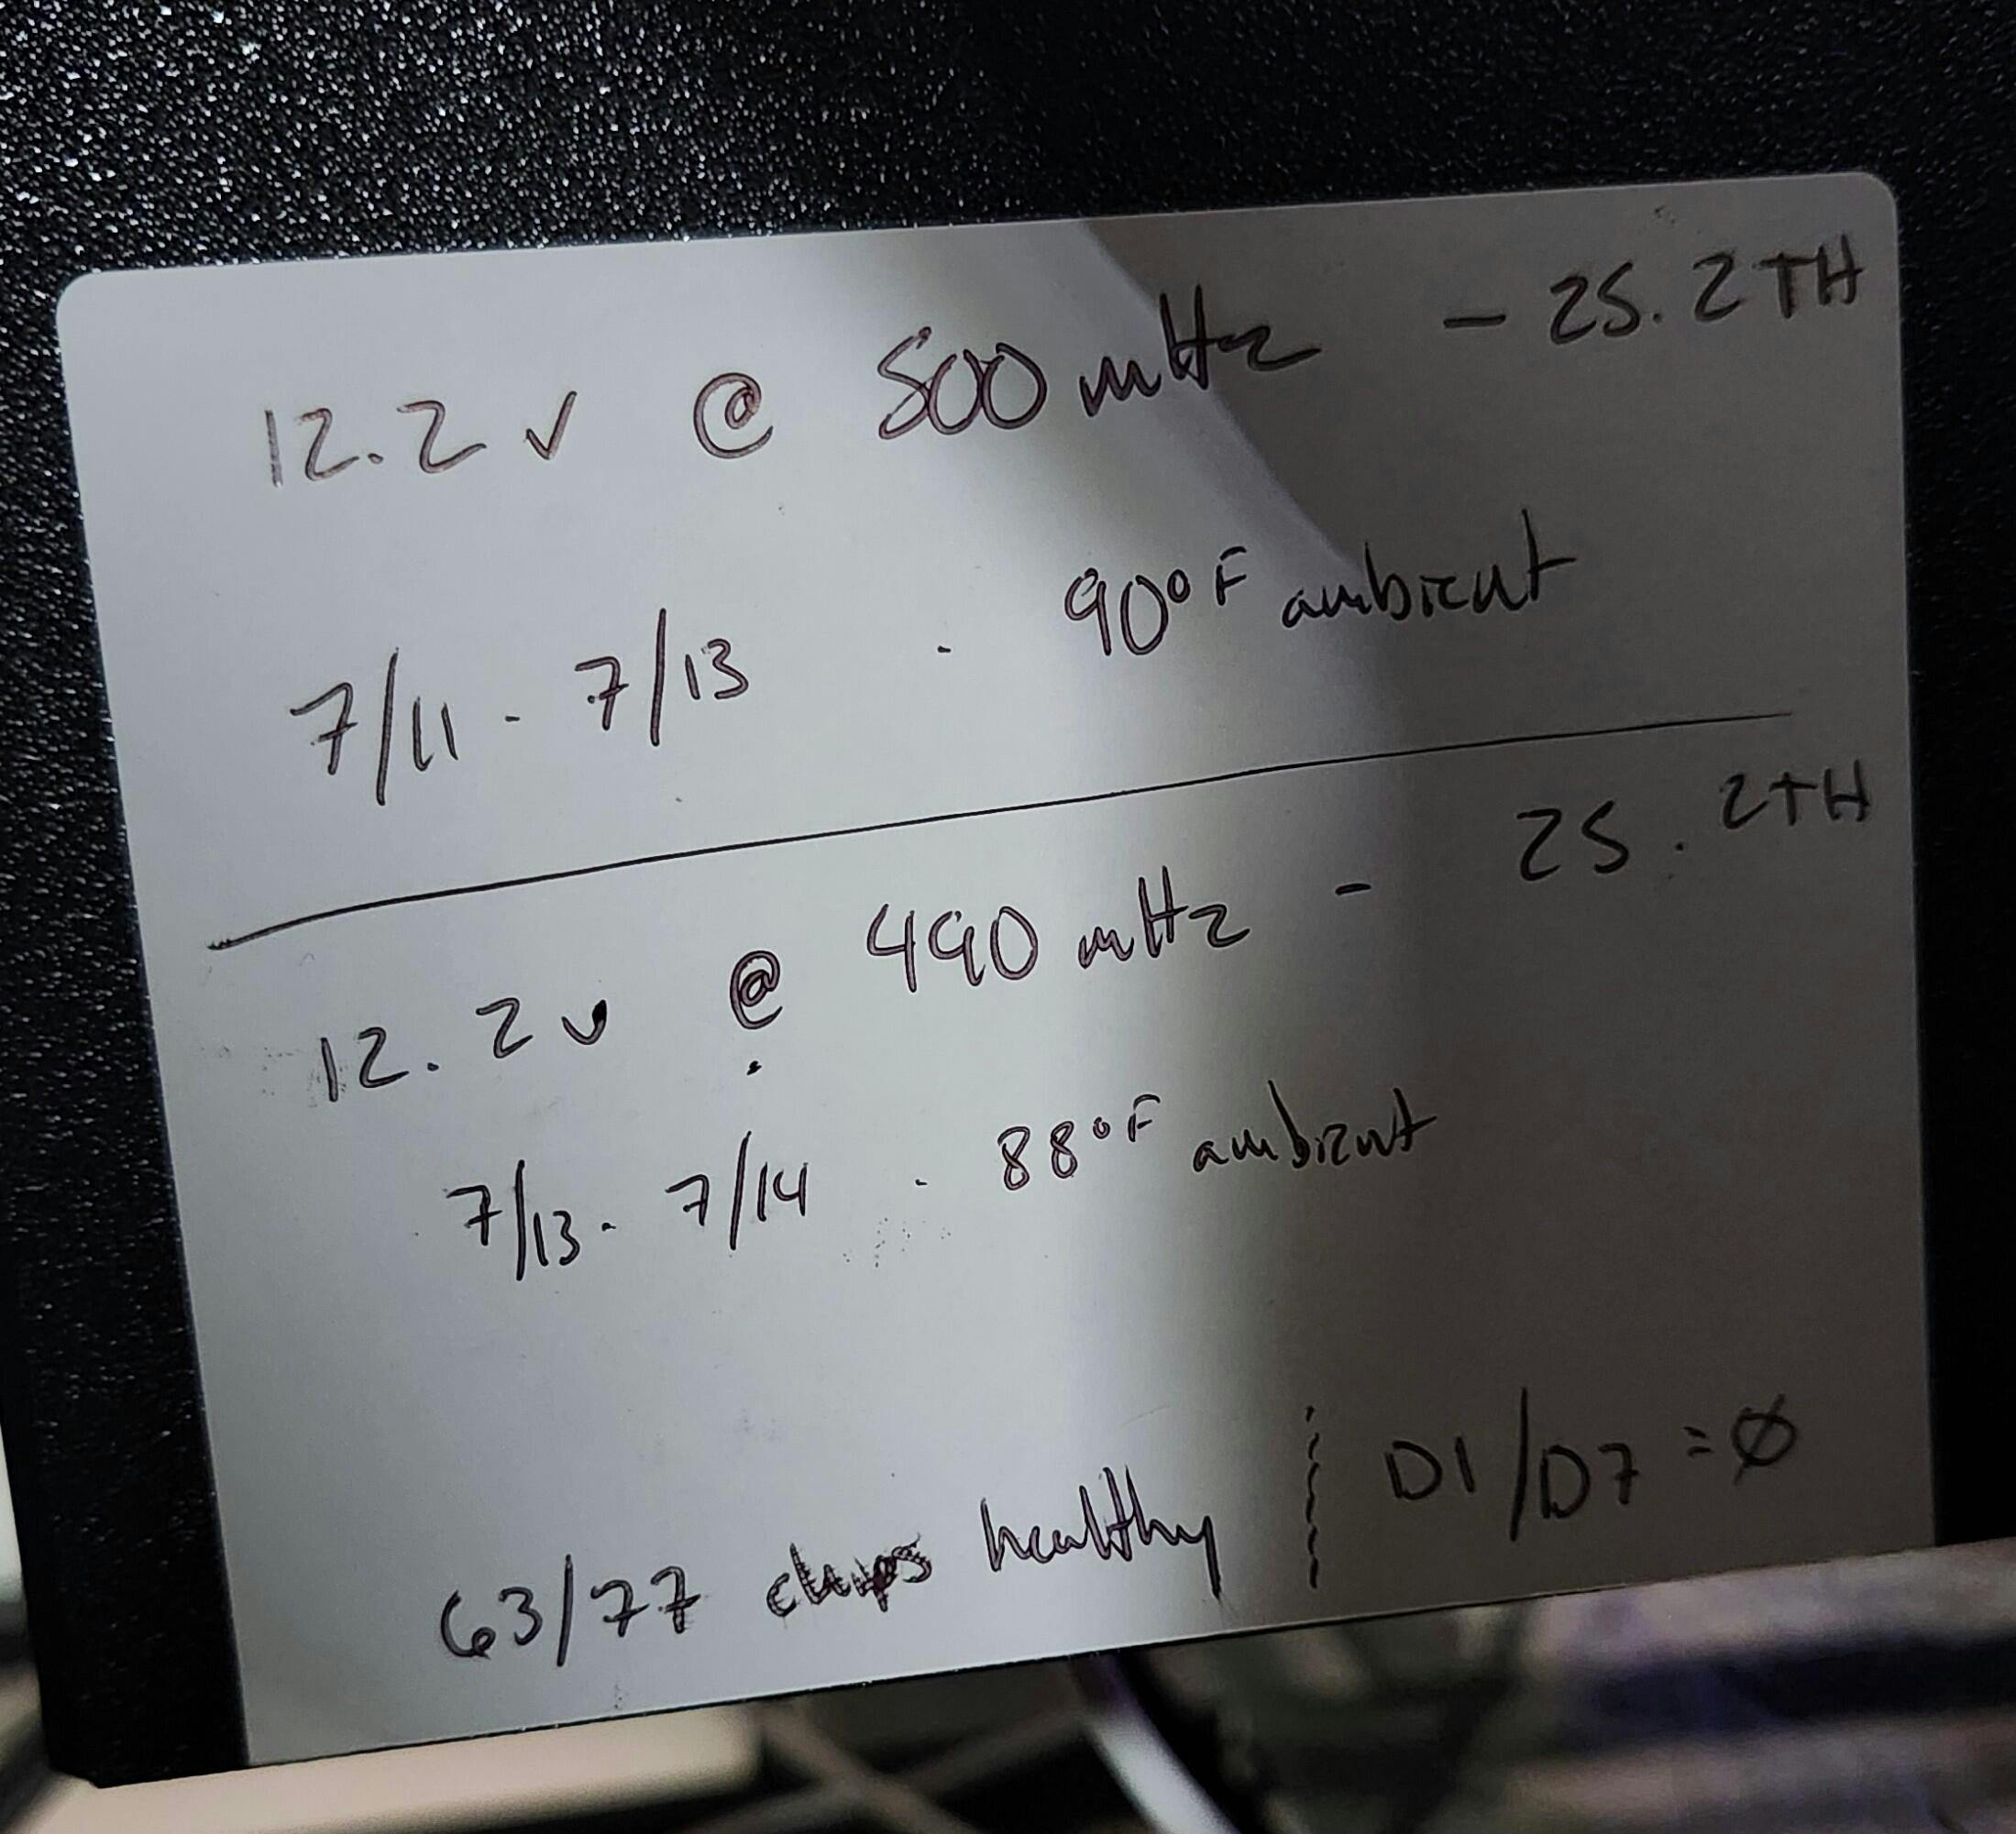 12.2 v @ 500 mHz - 25.2 TH
7/11 - 7/13 - 90°F ambient
12.2 v @ 490 mHz - 25.2TH
7/13 - 7/14 - 88°F ambient
63/77 chips healthy ¦ D1/D7 = Ø